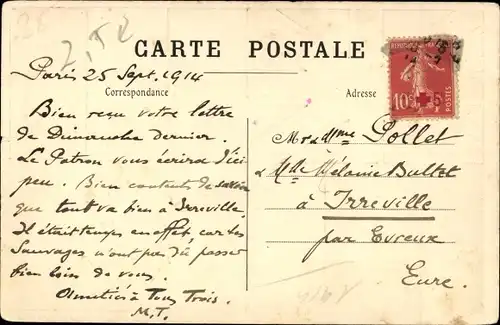 2,50
CARTE POSTALE
Paris 25 Sept. 1914
Correspondance
Adresse
REPUBLIQUE FRANÇAISE
10c
5c
POSTES
Bien reçu votre lettre
de Dimanche dernier.
Le Patron vous écrira d'ici
peu. Bien contents de savoir
que tout va bien à Irreville,
Il était temps en effet, car les
Sauvages n'ont pas dû passer
bien loin de vous.
Amitiés à Tous Trois.
M.T.
Mr & Mme Pollet
& Mde Mélanie Bultet
à
Irreville
par Evreux
Eure.